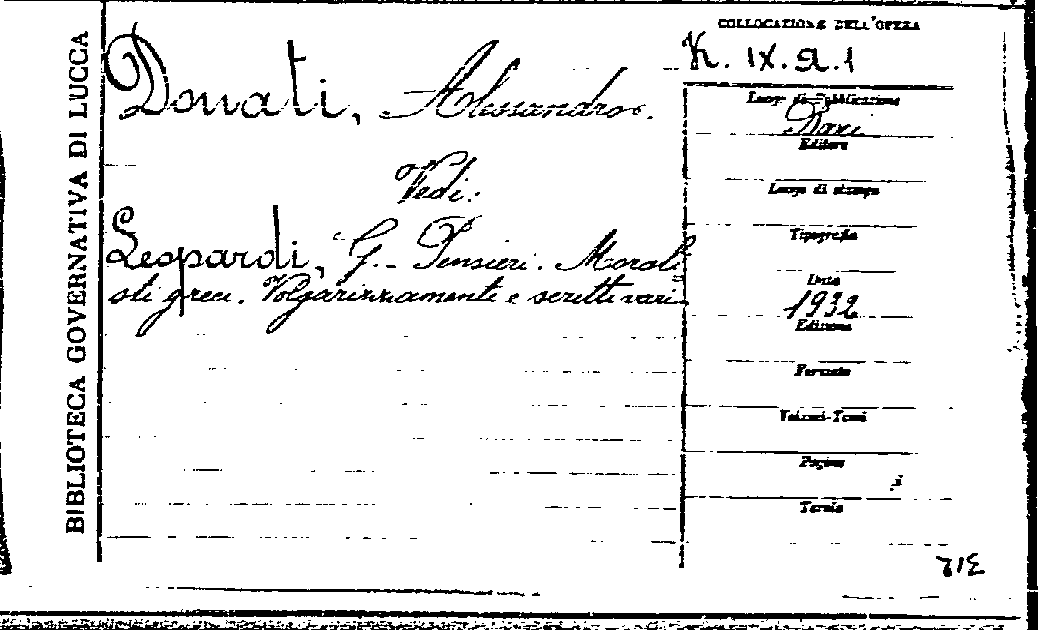 BIBLIOTECA GOVERNATIVA DI LUCCA
Donati, Alessandro.
Vedi:
Leopardi, G. - Pensieri. Morali
sti greci. Volgarizzamenti e scritti vari
COLLOCAZIONE DELL'OPERA
K. IX. A. 1
Luogo di Pubblicazione
Bari
Editore
Luogo di stampa
Tipografia
Data
1932
Edizione
Formato
Volumi-Tomi
Pagine
Tavole